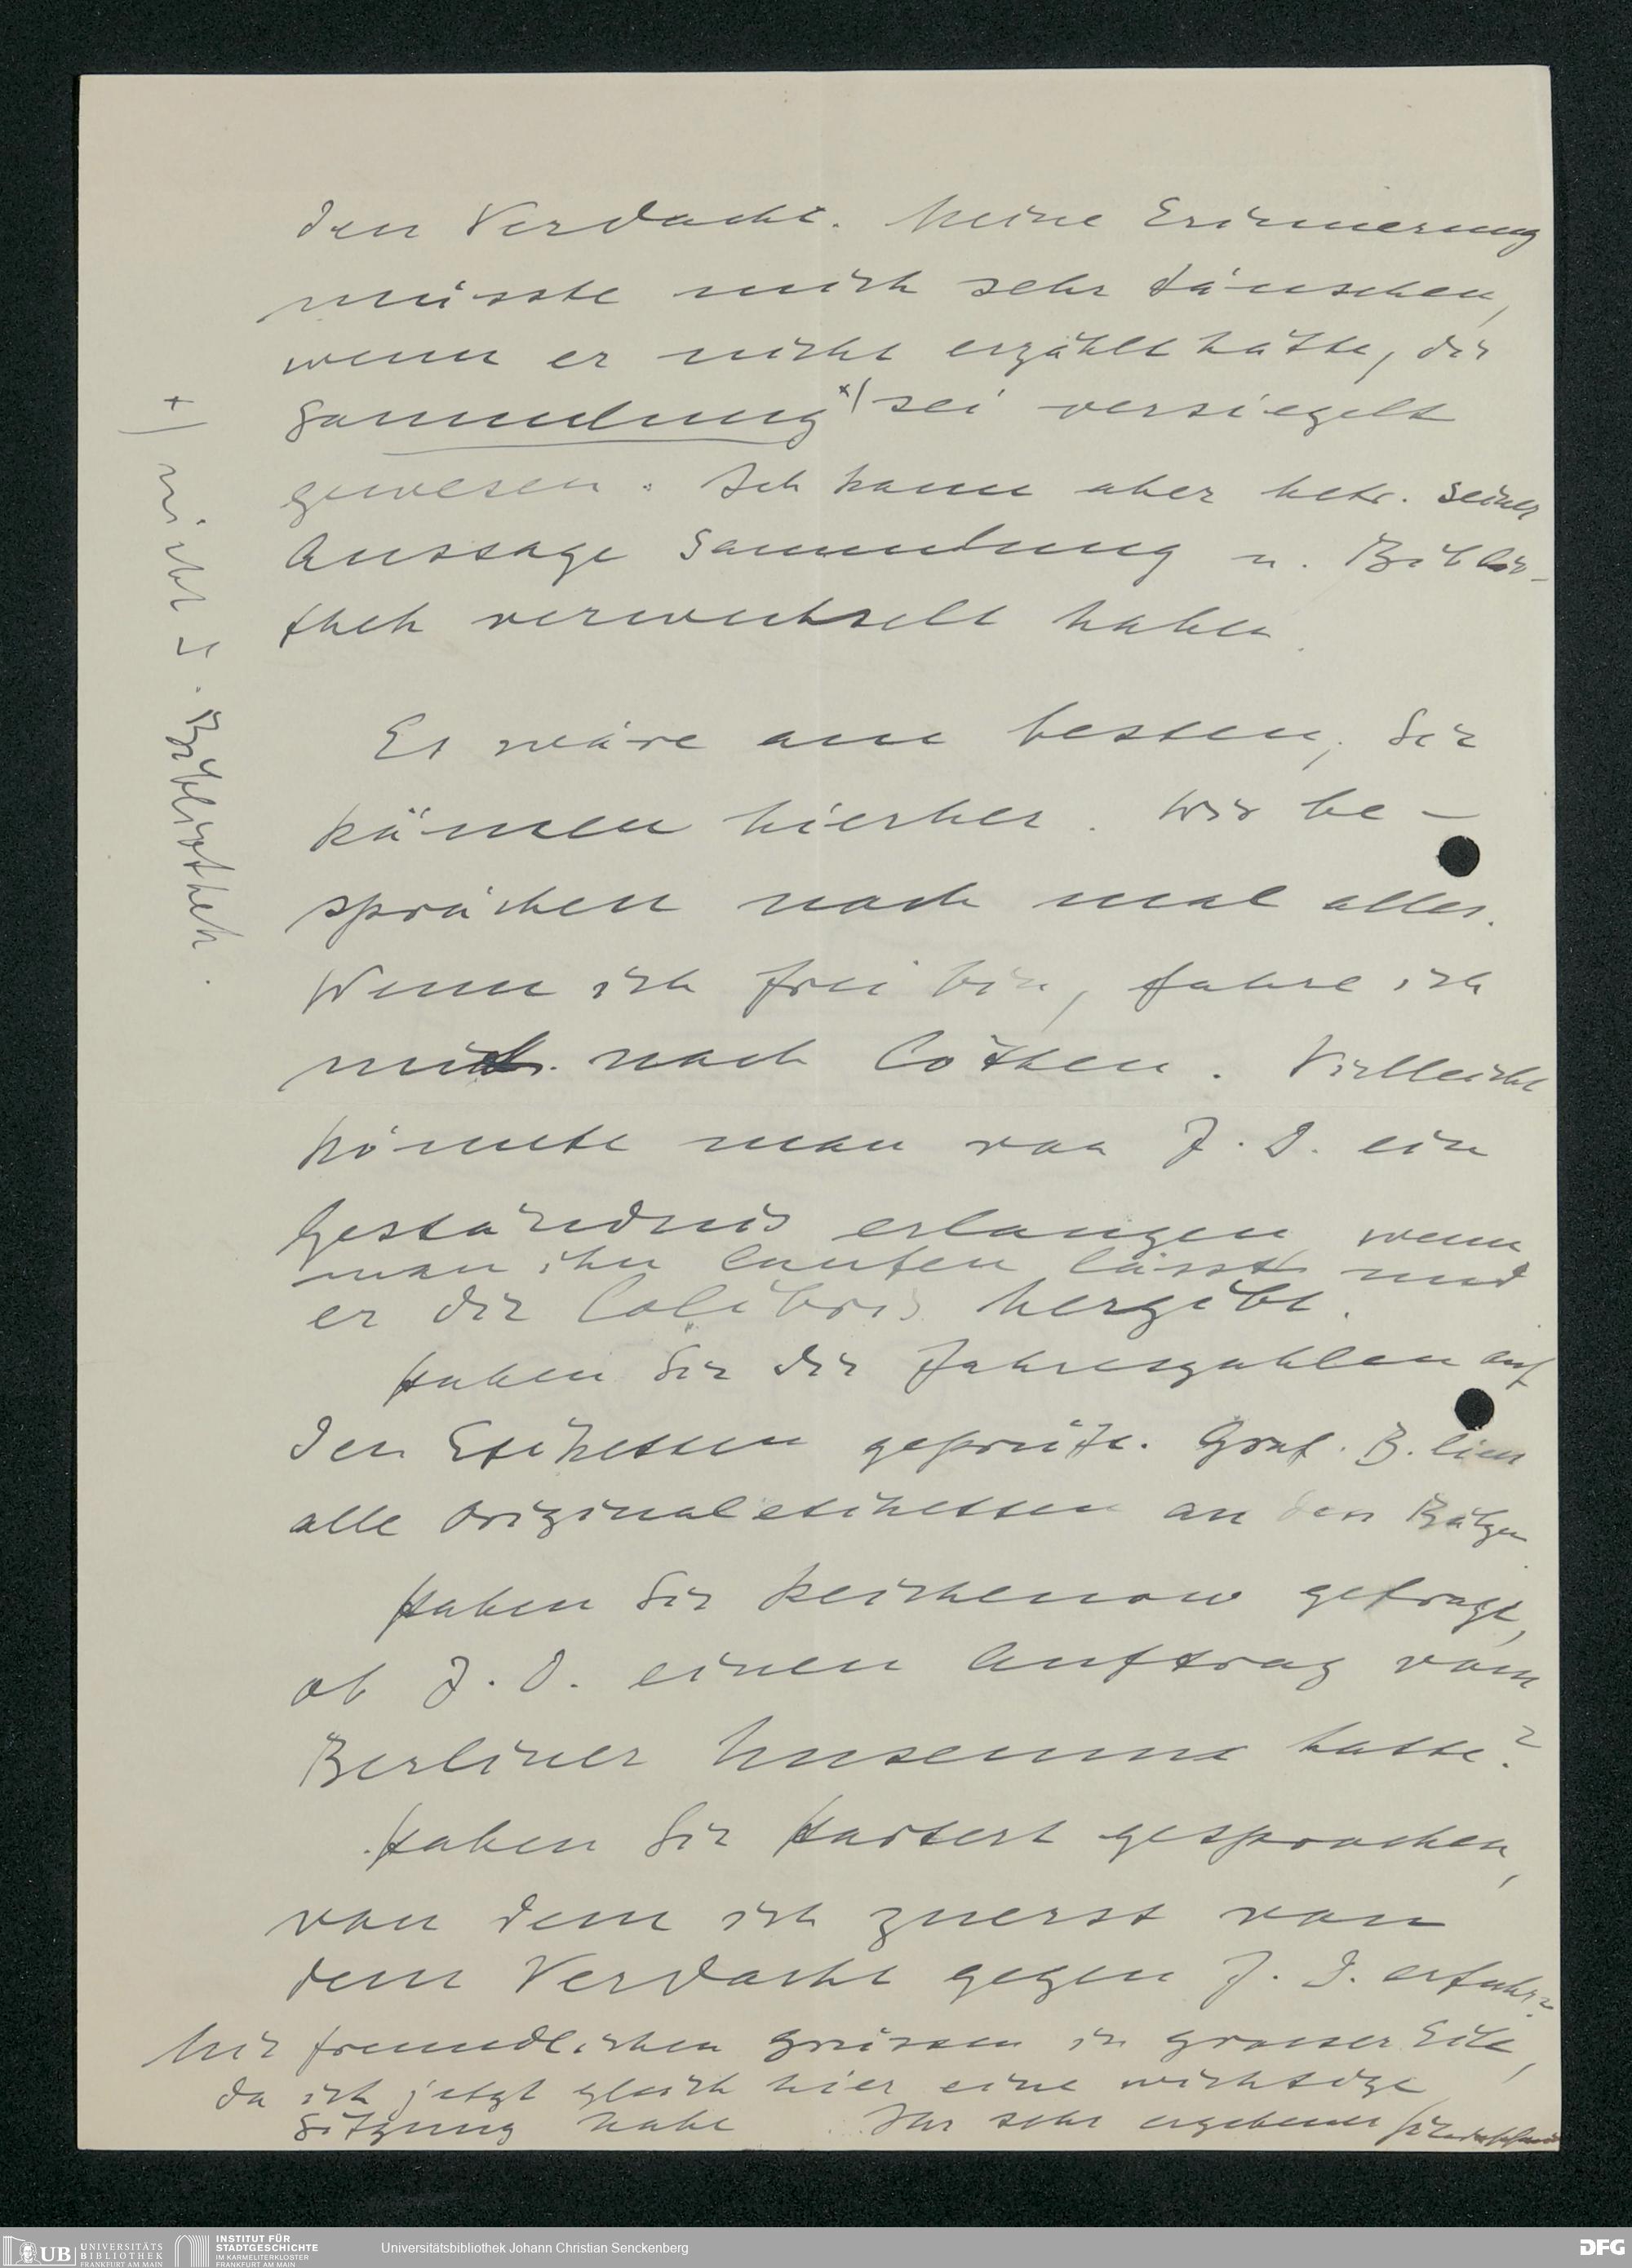 den Verdacht. Meine Erinnerung
müsste mich sehr täuschen,
wenn er nicht erzählt hätte, die
Sammlung +) sei versiegelt
gewesen. Ich kann aber betr. seiner
Aussage Sammlung u. Biblio-
thek verwechselt haben.
+) nicht d. Bibliothek.
Es wäre am besten, Sie
kämen hierher. Wir be-
sprächen noch mal alles.
Wenn ich frei bin, fahre ich
mit nach Cöthen. Vielleicht
könnte man von J. D. ein
Geständnis erlangen wenn
man ihn laufen lässt und
er die Colibris hergibt.
Haben Sie die Jahreszahlen auf
den Etiketten geprüft. Graf. B. liess
alle Originaletiketten an den Bälgen
Haben Sie Reichenow gefragt,
ob J. D. einen Auftrag vom
Berliner Museum hatte?
Haben Sie Hartert gesprochen,
von dem ich zuerst von
dem Verdacht gegen J. D. erfuhr?
Mit freundlichen Grüssen in grosser Eile,
da ich jetzt gleich hier eine wichtige
Sitzung habe Ihr sehr ergebener
UB UNIVERSITÄTS
BIBLIOTHEK
FRANKFURT AM MAIN
INSTITUT FÜR
STADTGESCHICHTE
IM KARMELITERKLOSTER
FRANKFURT AM MAIN
Universitätsbibliothek Johann Christian Senckenberg
DFG